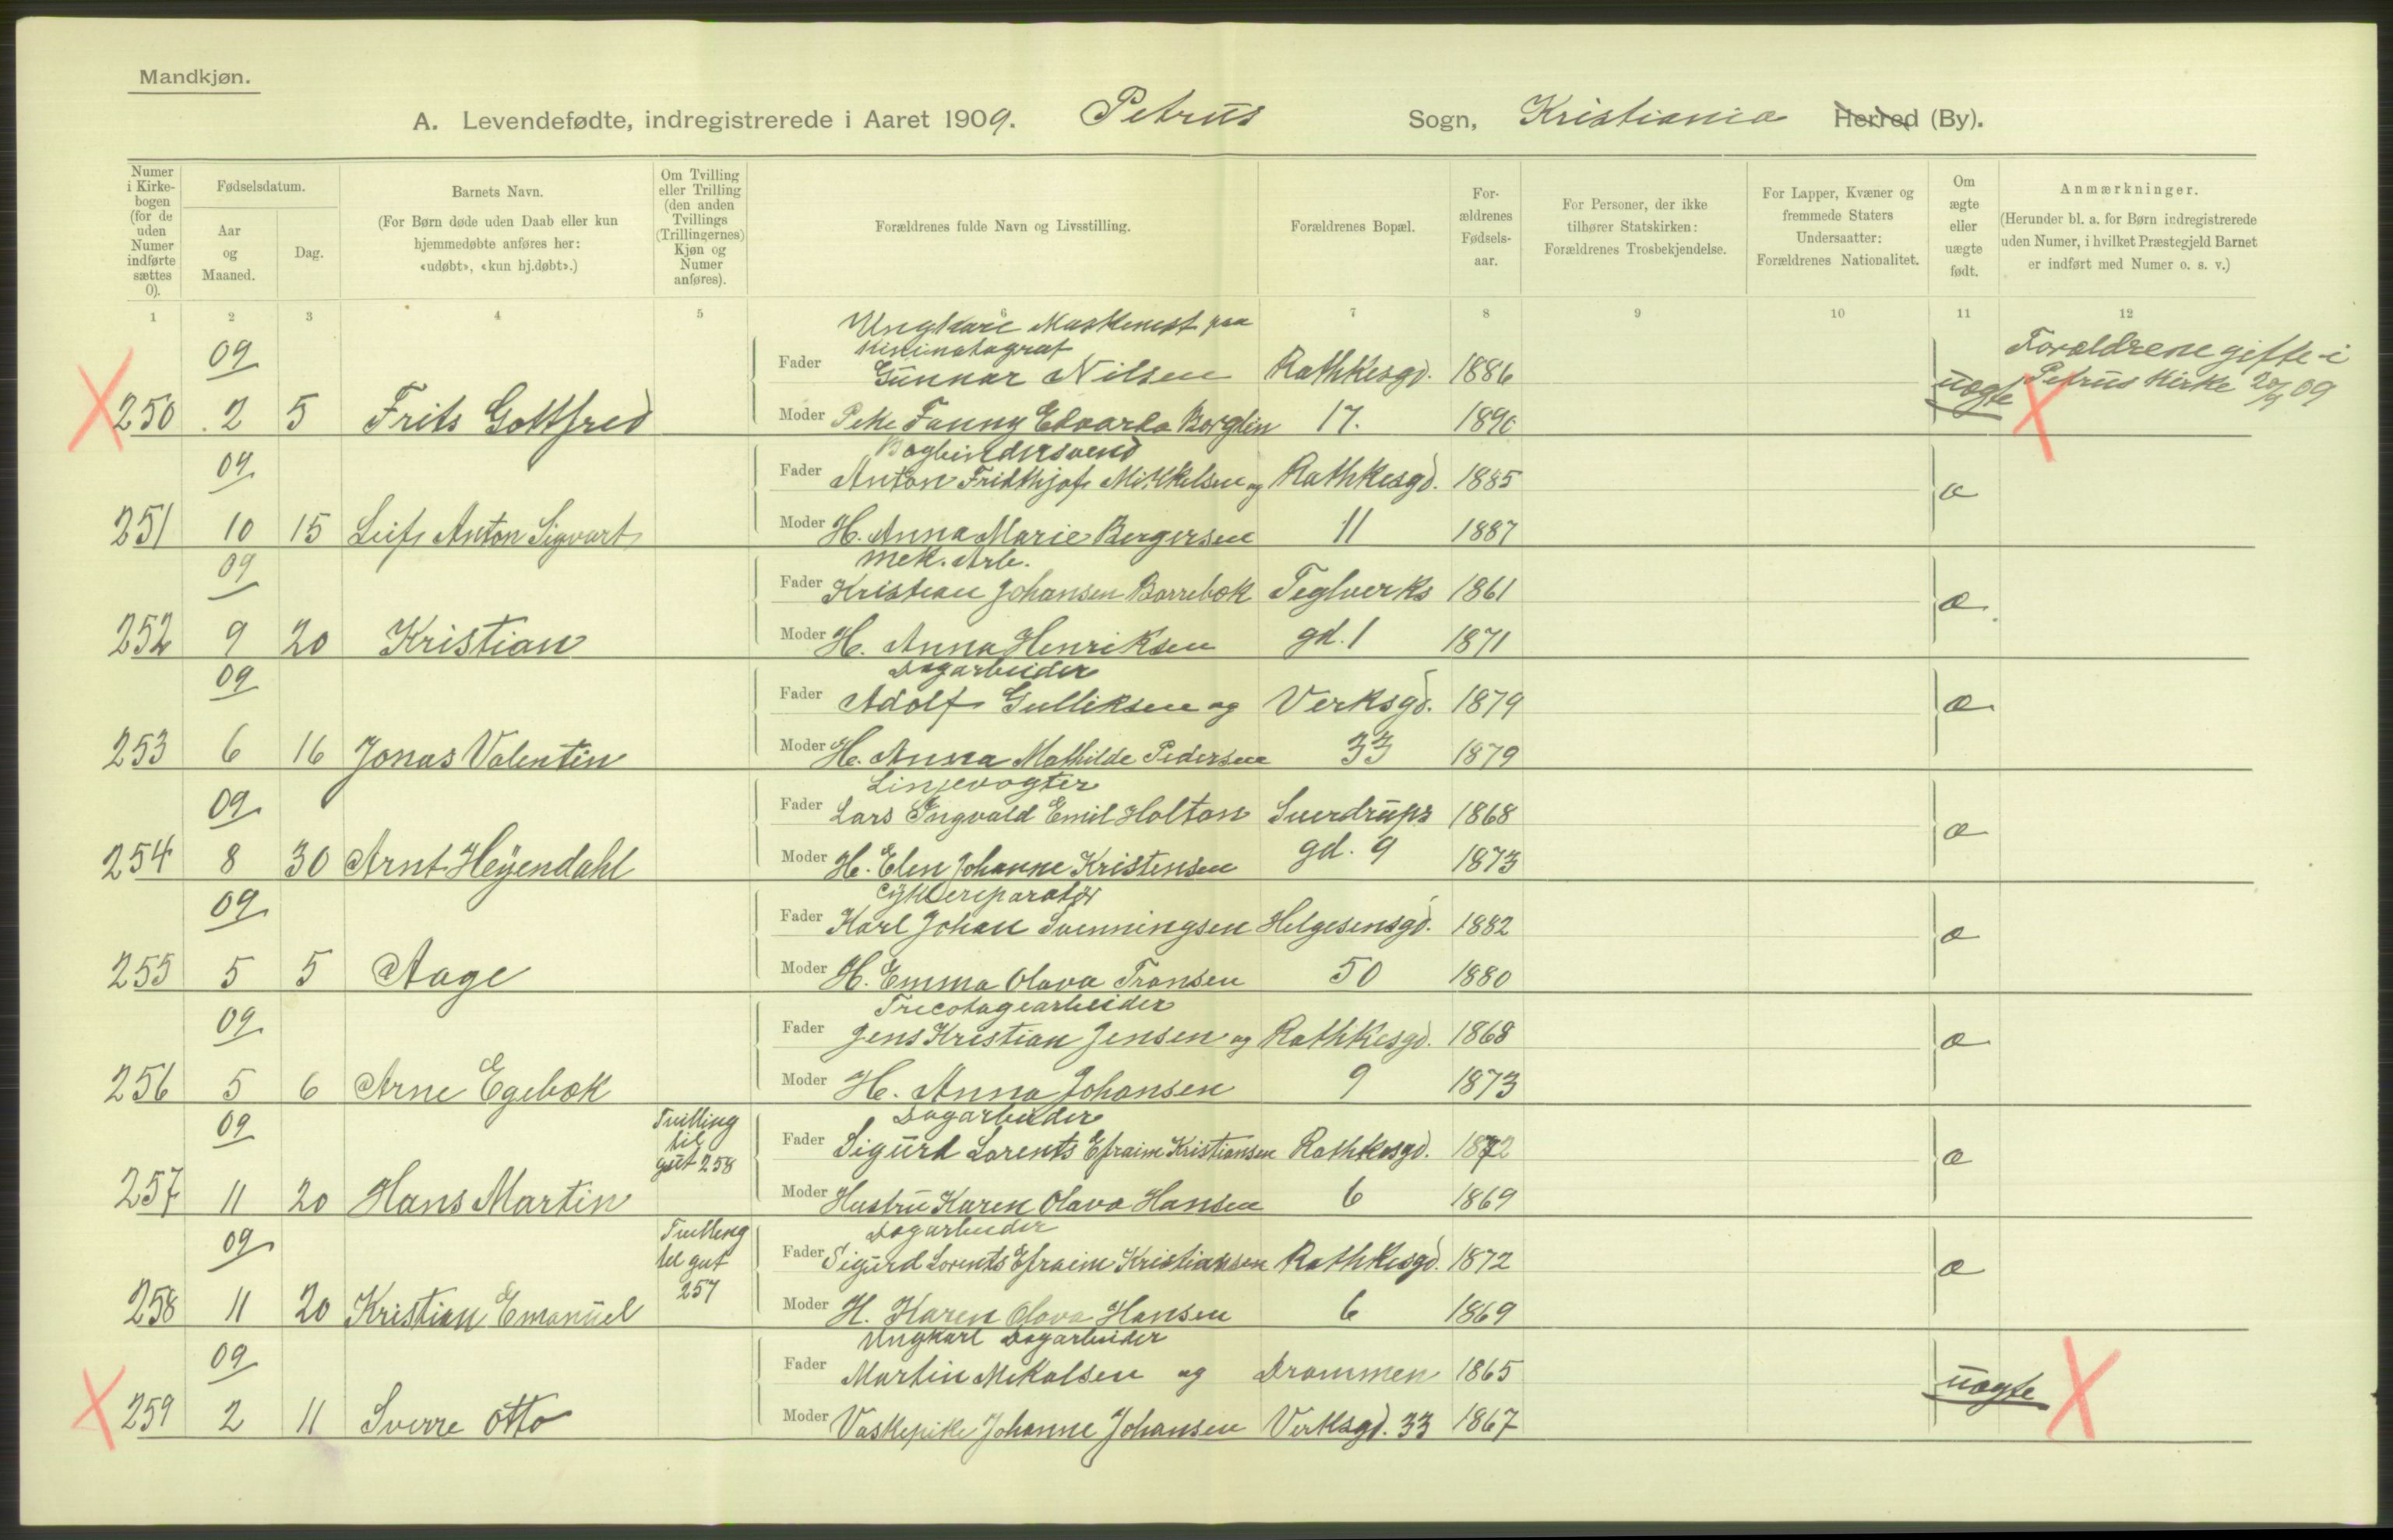 Mandkjøn.
A. Levendefødte, indregistrerede i Aaret 1909. Petrus Sogn, Kristiania Herred (By).
Numer i Kirkebogen (for de uden Numer indførte sættes 0).
Fødselsdatum.
Aar og Maaned.
Dag.
Barnets Navn.
(For Børn døde uden Daab eller kun hjemmedøbte anføres her: «udøbt», «kun hj.døbt».)
Om Tvilling eller Trilling (den anden Tvillings (Trillingernes) Kjøn og Numer anføres).
Forældrenes fulde Navn og Livsstilling.
Forældrenes Bopæl.
Forældrenes Fødselsaar.
For Personer, der ikke tilhører Statskirken: Forældrenes Trosbekjendelse.
For Lapper, Kvæner og fremmede Staters Undersaatter: Forældrenes Nationalitet.
Om ægte eller uægte født.
Anmærkninger.
(Herunder bl. a. for Børn indregistrerede uden Numer, i hvilket Præstegjeld Barnet er indført med Numer o. s. v.)
1 2 3 4 5 6 7 8 9 10 11 12
Ungkarl Maskinist paa
Kinimatograf
09 Fader Gunnar Nilsen Rathkesgd. 1886 Forældrene gifte i
250 2 5 Frits Gottfred Moder Pike Fanny Edvarda Borglin 17. 1890 uægte Petrus Kirke 20/4 09
Bogbindersvend
09 Fader Anton Fridthjof Mikkelsen og Rathkesgd. 1885 æ
251 10 15 Leif Anton Sigvart Moder H. Anna Marie Bergersen 11 1887
Mek. Arb.
09 Fader Kristian Johansen Borrebæk Teglverks 1861 æ.
252 9 20 Kristian Moder H. Anna Henriksen gd. 1 1871
Dagarbeider
09 Fader Adolf Gulliksen og Verksgd. 1879 æ
253 6 16 Jonas Valentin Moder H. Anna Mathilde Pedersen 33 1879
Linjevogter
09 Fader Lars Ingvald Emil Holton Sverdrups 1868 æ
254 8 30 Arnt Heyendahl Moder H. Elen Johanne Kristensen gd. 9 1873
Cyklereparatør
09 Fader Karl Johan Svenningsen Helgesensgd. 1882 æ
255 5 5 Aage Moder H. Emma Olava Fransen 50 1880
Tricotagearbeider
09 Fader Jens Kristian Jensen og Rathkesgd. 1868 æ
256 5 6 Arne Egebæk Moder H. Anna Johansen 9 1873
Dagarbeider
09 Tvilling til gut 258 Fader Sigurd Lorents Efraim Kristiansen Rathkesgd. 1872 æ
257 11 20 Hans Martin Moder Hustru Karen Olava Hansen 6 1869
Dagarbeider
09 Tvilling til gut 257 Fader Sigurd Lorents Efraim Kristiansen Rathkesgd. 1872 æ
258 11 20 Kristian Emanuel Moder H. Karen Olava Hansen 6 1869
Ungkarl Dagarbeider
09 Fader Martin Mikalsen og Drammen 1865 uægte
259 2 11 Sverre Otto Moder Vaskepike Johanne Johansen Verksgd. 33 1867